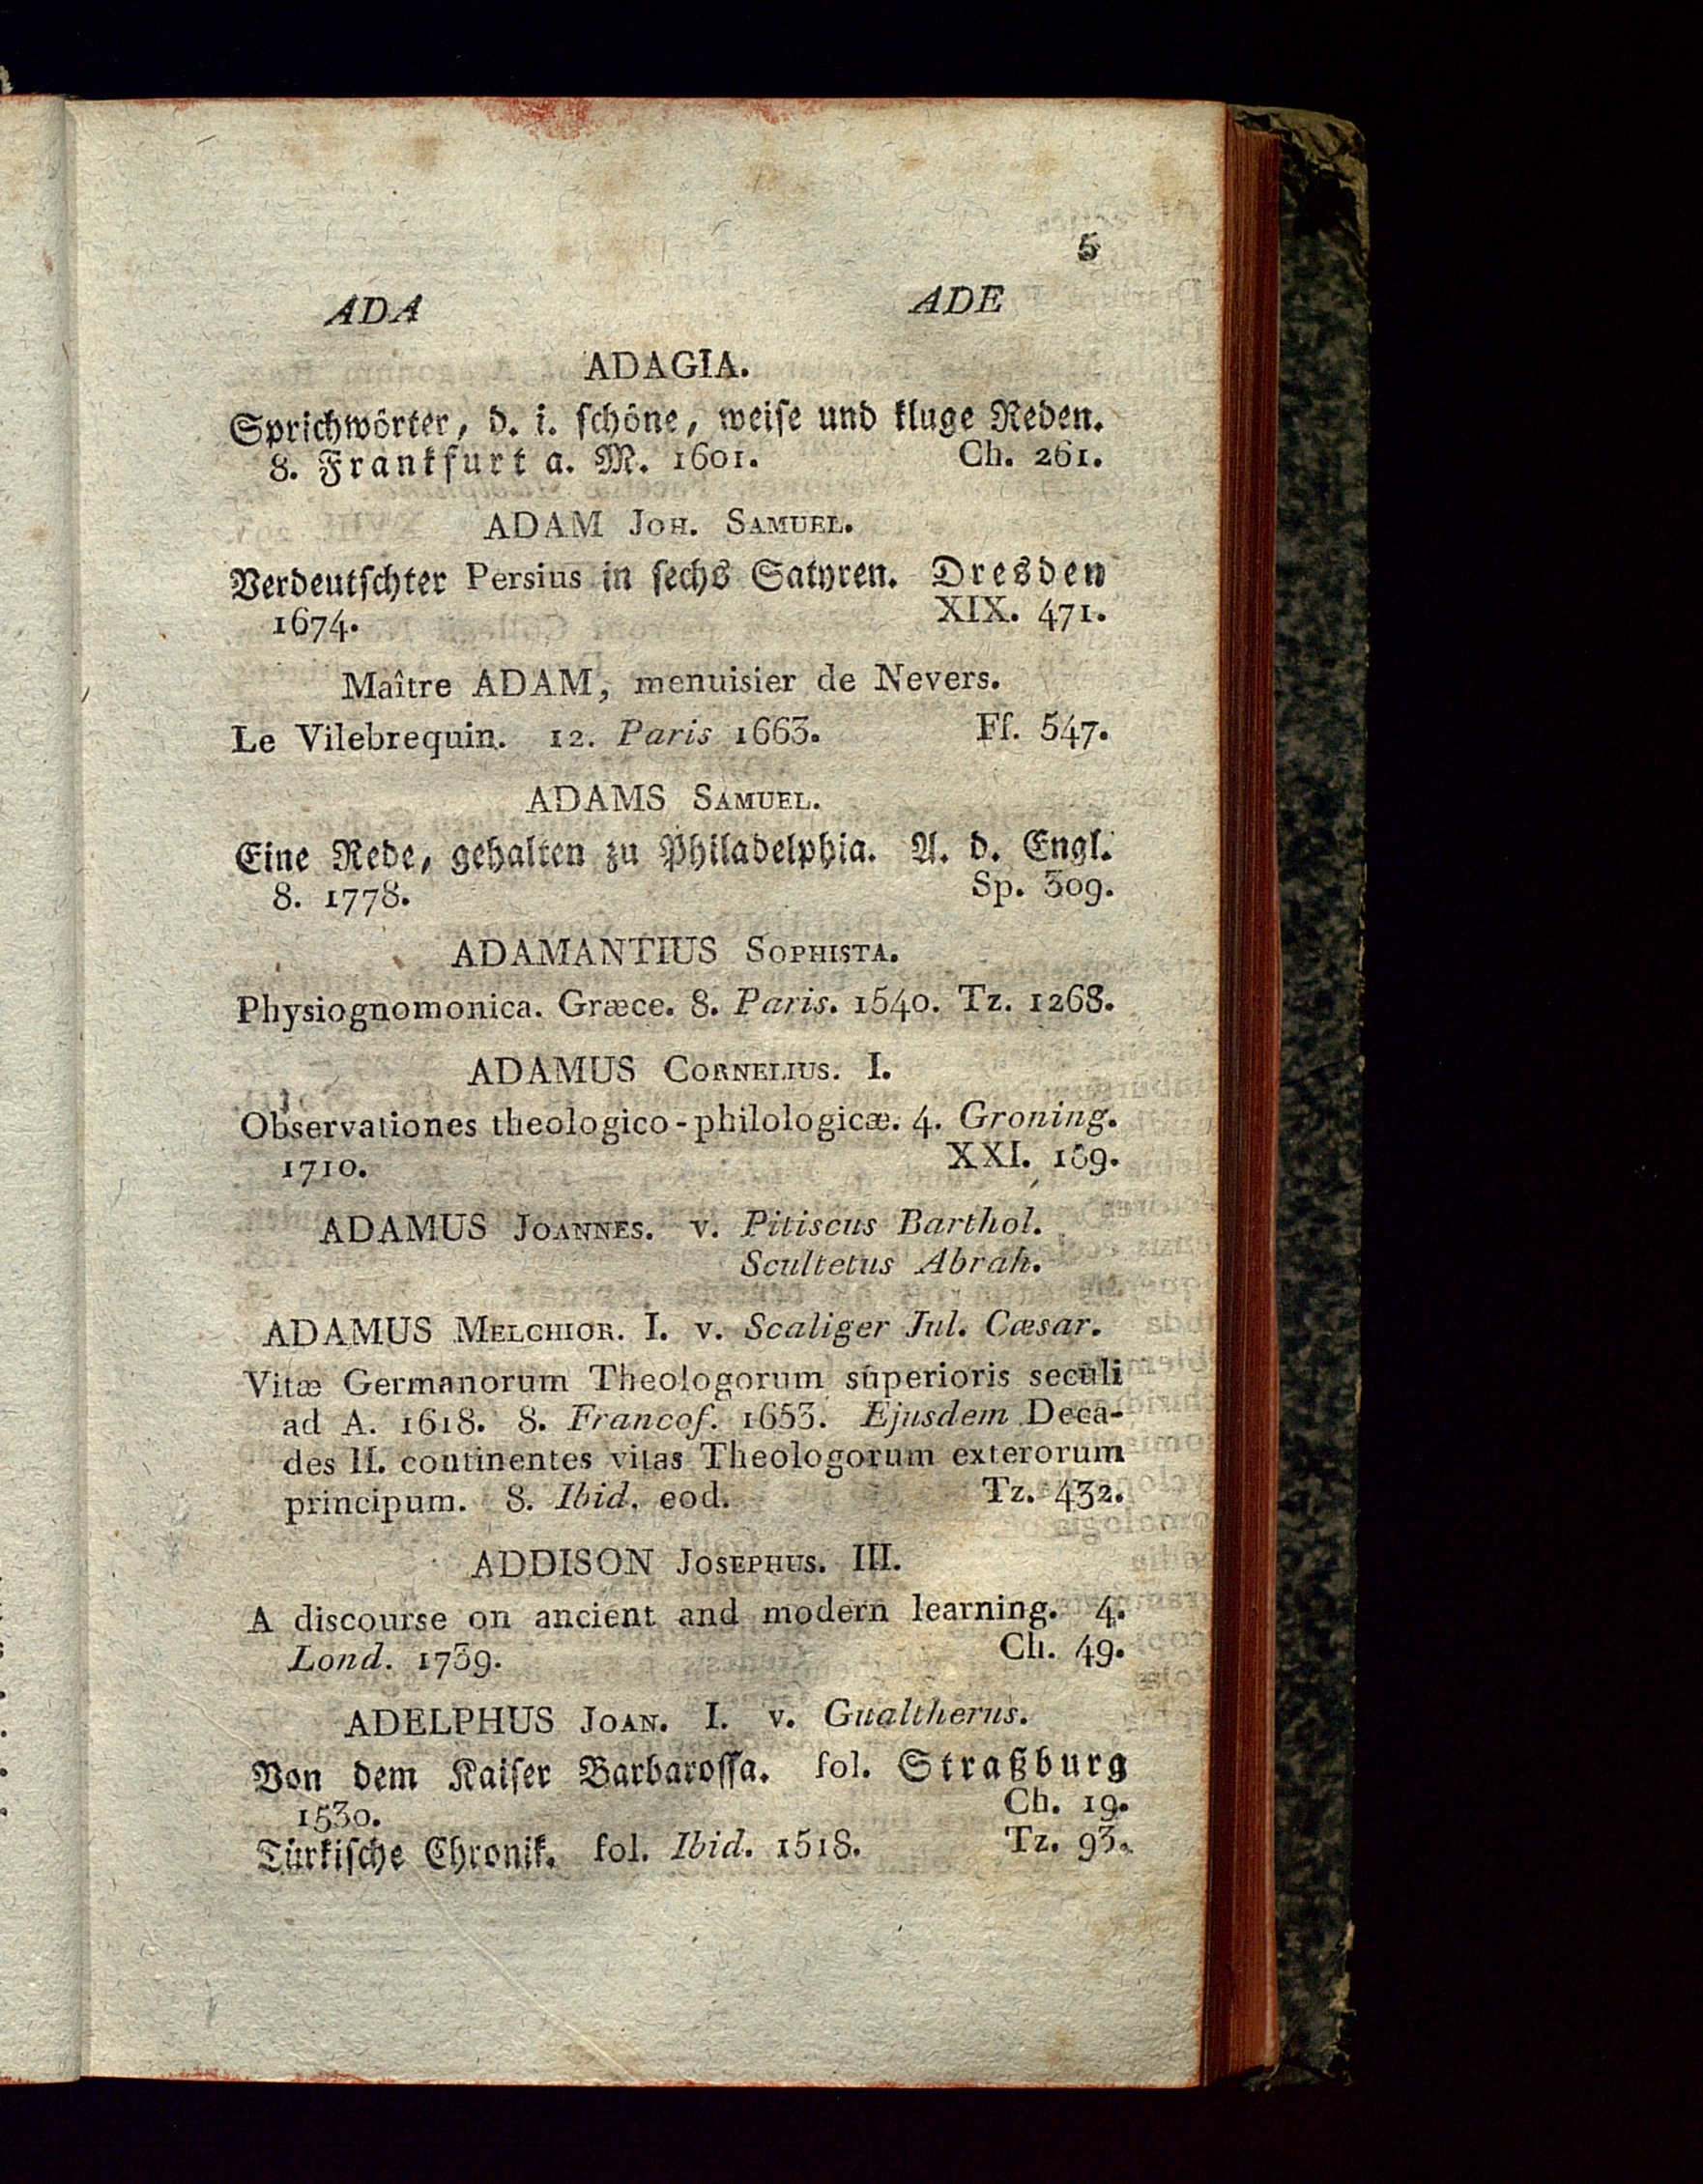 5
ADA ADE
ADAGIA.
Sprichwörter, d. i. schöne, weise und kluge Reden.
8. Frankfurt a. M. 1601. Ch. 261.
ADAM Joh. Samuel.
Verdeutschter Persius in sechs Satyren. Dresden
1674. XIX. 471.
Maître ADAM, menuisier de Nevers.
Le Vilebrequin. 12. Paris 1663. Ff. 547.
ADAMS Samuel.
Eine Rede, gehalten zu Philadelphia. A. d. Engl.
8. 1778. Sp. 309.
ADAMANTIUS Sophista.
Physiognomonica. Græce. 8. Paris. 1540. Tz. 1268.
ADAMUS Cornelius. I.
Observationes theologico-philologicæ. 4. Groning.
1710. XXI. 189.
ADAMUS Joannes. v. Pitiscus Barthol.
Scultetus Abrah.
ADAMUS Melchior. I. v. Scaliger Jul. Cæsar.
Vitæ Germanorum Theologorum superioris seculi
ad A. 1618. 8. Francof. 1653. Ejusdem Deca-
des II. continentes vitas Theologorum exterorum
principum. 8. Ibid. eod. Tz. 432.
ADDISON Josephus. III.
A discourse on ancient and modern learning. 4.
Lond. 1739. Ch. 49.
ADELPHUS Joan. I. v. Gualtherus.
Von dem Kaiser Barbarossa. fol. Straßburg
1530. Ch. 19.
Türkische Chronik. fol. Ibid. 1518. Tz. 93.